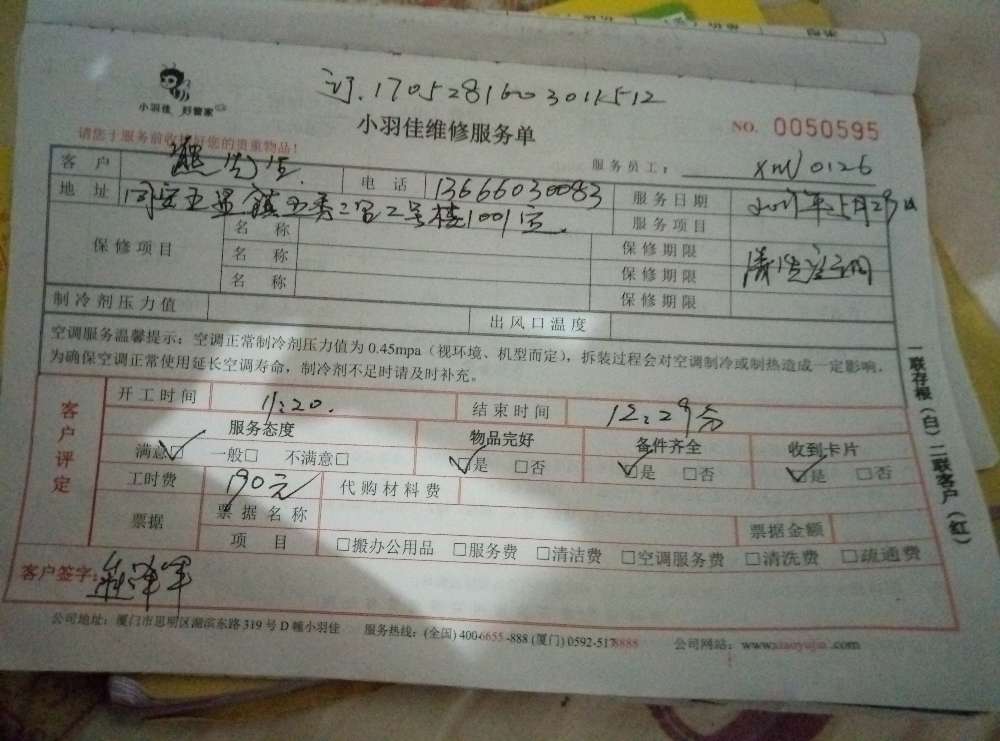 小羽佳 好管家
订.1705281603011512
小羽佳维修服务单
NO. 0050595
请您于服务前收好您的贵重物品!
服务员工: xm 0126
客户 熊先生 电话 13666030083 服务日期 2017年5月29日
地址 同安五显镇 2号楼1001室 服务项目 清洗空调
保修项目 名称 保修期限
名称 保修期限
名称 保修期限
制冷剂压力值 出风口温度
空调服务温馨提示:空调正常制冷剂压力值为0.45mpa(视环境、机型而定),拆装过程会对空调制冷或制热造成一定影响,
为确保空调正常使用延长空调寿命,制冷剂不足时请及时补充。
客户评定
开工时间 11:20. 结束时间 12:29分
服务态度 物品完好 备件齐全 收到卡片
满意☑ 一般□ 不满意□ ☑是 □否 ☑是 □否 ☑是 □否
工时费 190元 代购材料费
票据 票据名称 票据金额
项目 □搬办公用品 □服务费 □清洁费 □空调服务费 □清洗费 □疏通费
客户签字:
公司地址:厦门市思明区湖滨东路319号D幢小羽佳 服务热线:(全国)400-6655-888 (厦门)0592-5178885 公司网站:www.xiaoyujia.com
一联存根(白)二联客户(红)